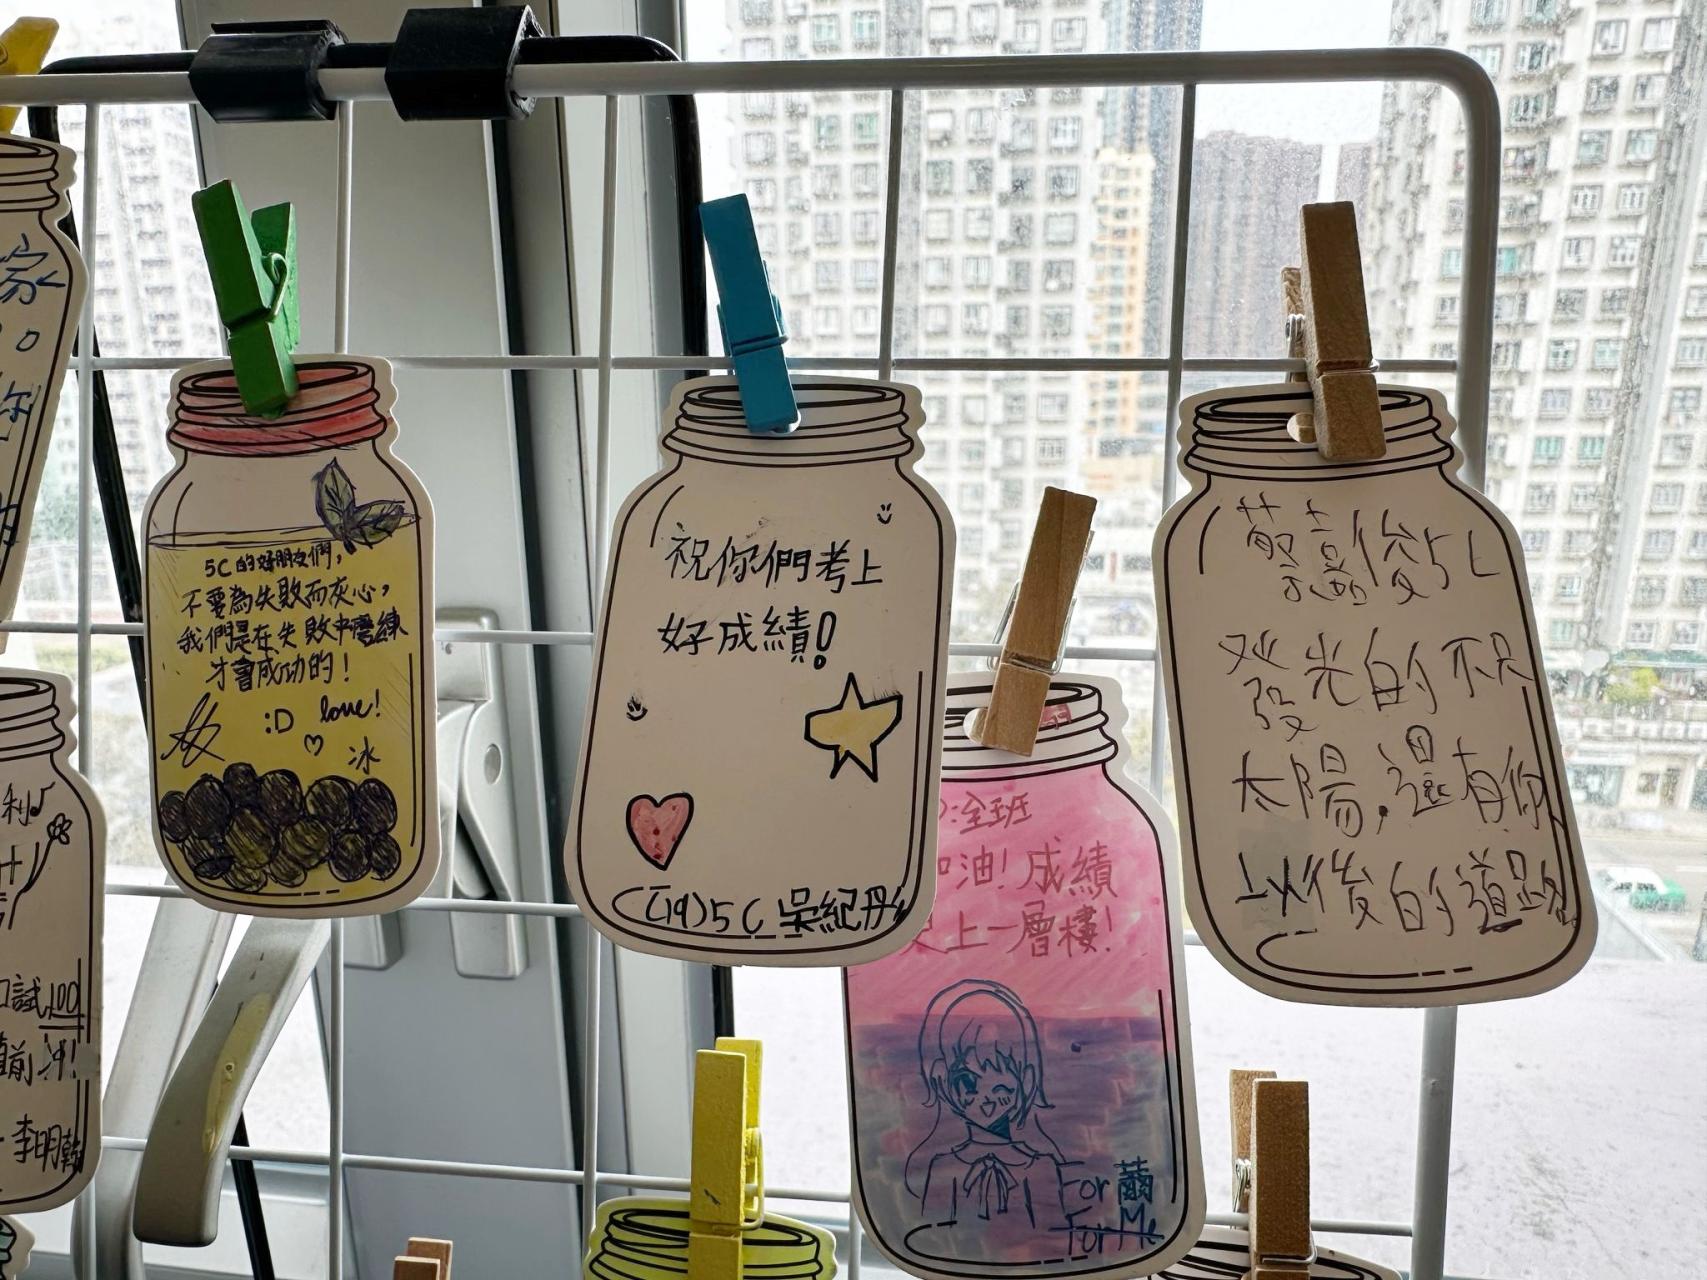 家
你
利
口試100
前沖!
李明乾
5C的好朋友們,
不要為失敗而灰心,
我們是在失敗中磨練
才會成功的!
:D love!
冰
祝你們考上
好成績!
(19)5C 吳紀丹
:全班
加油!成績
更上一層樓!
For 繭
For Me
發光的不只
太陽,還有你
以後的道路